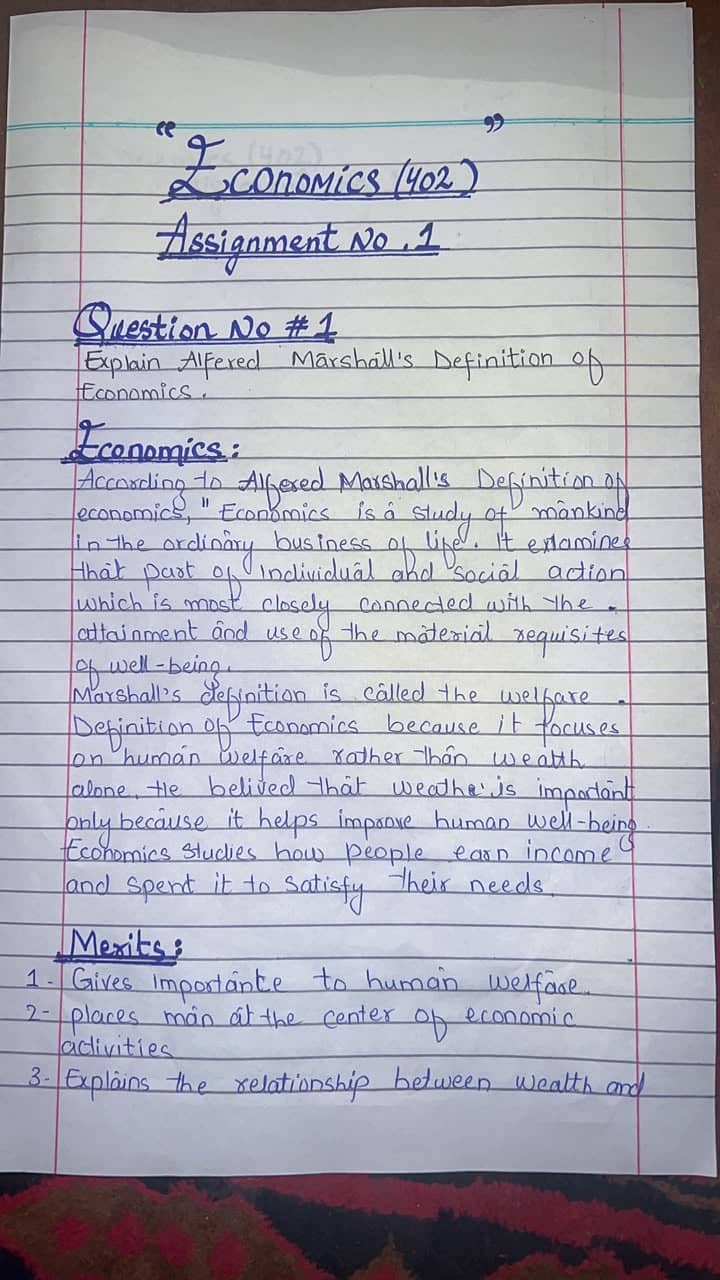 “ ”
Economics (402)
Assignment No. 1
Question No # 1
Explain Alfered Marshall's Definition of
Economics.
Economics:
According to Alfered Marshall's Definition of
economics, " Economics is a study of mankind
in the ordinary business of life. It examines
that part of individual and social action
which is most closely connected with the
attainment and use of the material requisites
of well-being.
Marshall's definition is called the welfare
Definition of Economics because it focuses
on human welfare rather than wealth
alone. He belived that weathe is important
only because it helps improve human well-being
Economics studies how people earn income
and spent it to satisfy their needs.
Merits:
1- Gives importante to human welfare.
2- places man at the center of economic
activities
3- Explains the relationship between wealth and